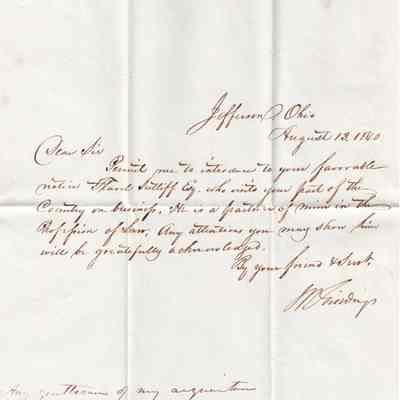 Jefferson Ohio
August 13. 1840
Dear Sir
Permit me to introduce to your favorable
notice Flavel Sutliff Esq. who visits your part of the
Country on business. He is a partner of mine in the
Profession of Law. Any attention you may show him
will be greatefully acknowledged.
By your friend & Servt.
J R Giddings
Any gentleman of my acquaintan